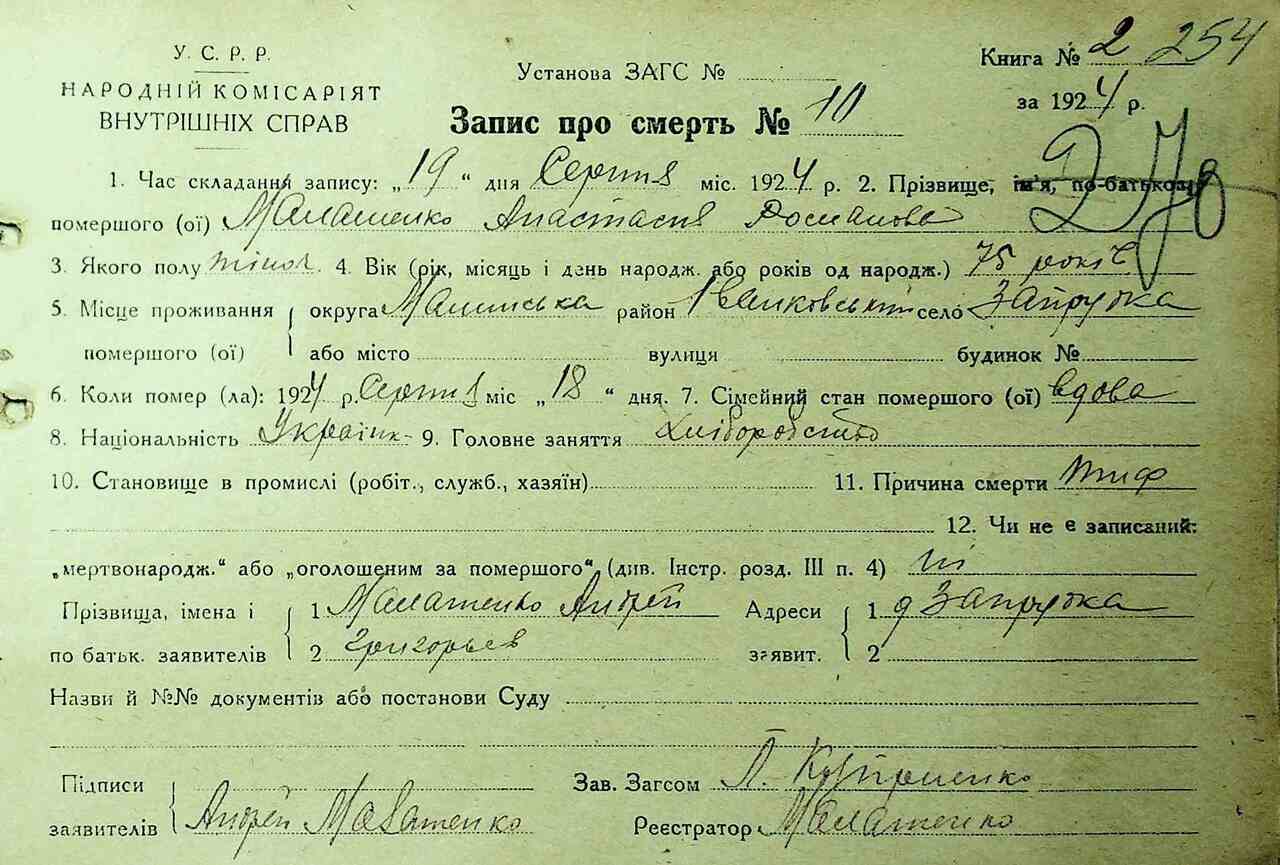 У. С. Р. Р.
НАРОДНІЙ КОМІСАРІЯТ
ВНУТРІШНІХ СПРАВ
Установа ЗАГС №
Книга № 2 254
за 1924 р.
Запис про смерть № 10
1. Час складання запису: „19“ дня Серпня міс. 1924 р. 2. Прізвище, ім'я, по-батькові
помершого (ої) Малашенко Анастасія Романова
3. Якого полу жіноч. 4. Вік (рік, місяць і день народж. або років од народж.) 75 років
5. Місце проживання помершого (ої) округа Малинська район Іванковський село Запрудка
або місто вулиця будинок №
6. Коли помер (ла): 1924 р. Серпня міс „18“ дня. 7. Сімейний стан помершого (ої) вдова
8. Національність Україн- 9. Головне заняття Хліборобство
10. Становище в промислі (робіт., служб., хазяїн) 11. Причина смерти тиф
12. Чи не є записаний:
„мертвонародж.“ або „оголошеним за помершого“ (див. Інстр. розд. III п. 4) ні
Прізвища, імена і по батьк. заявителів 1 Малашенко Андрей
2 Григорьев
Адреси заявит. 1. д Запрудка
2
Назви й №№ документів або постанови Суду
Підписи заявителів Андрей Малашенко
Зав. Загсом Л.
Реєстратор Малашенко